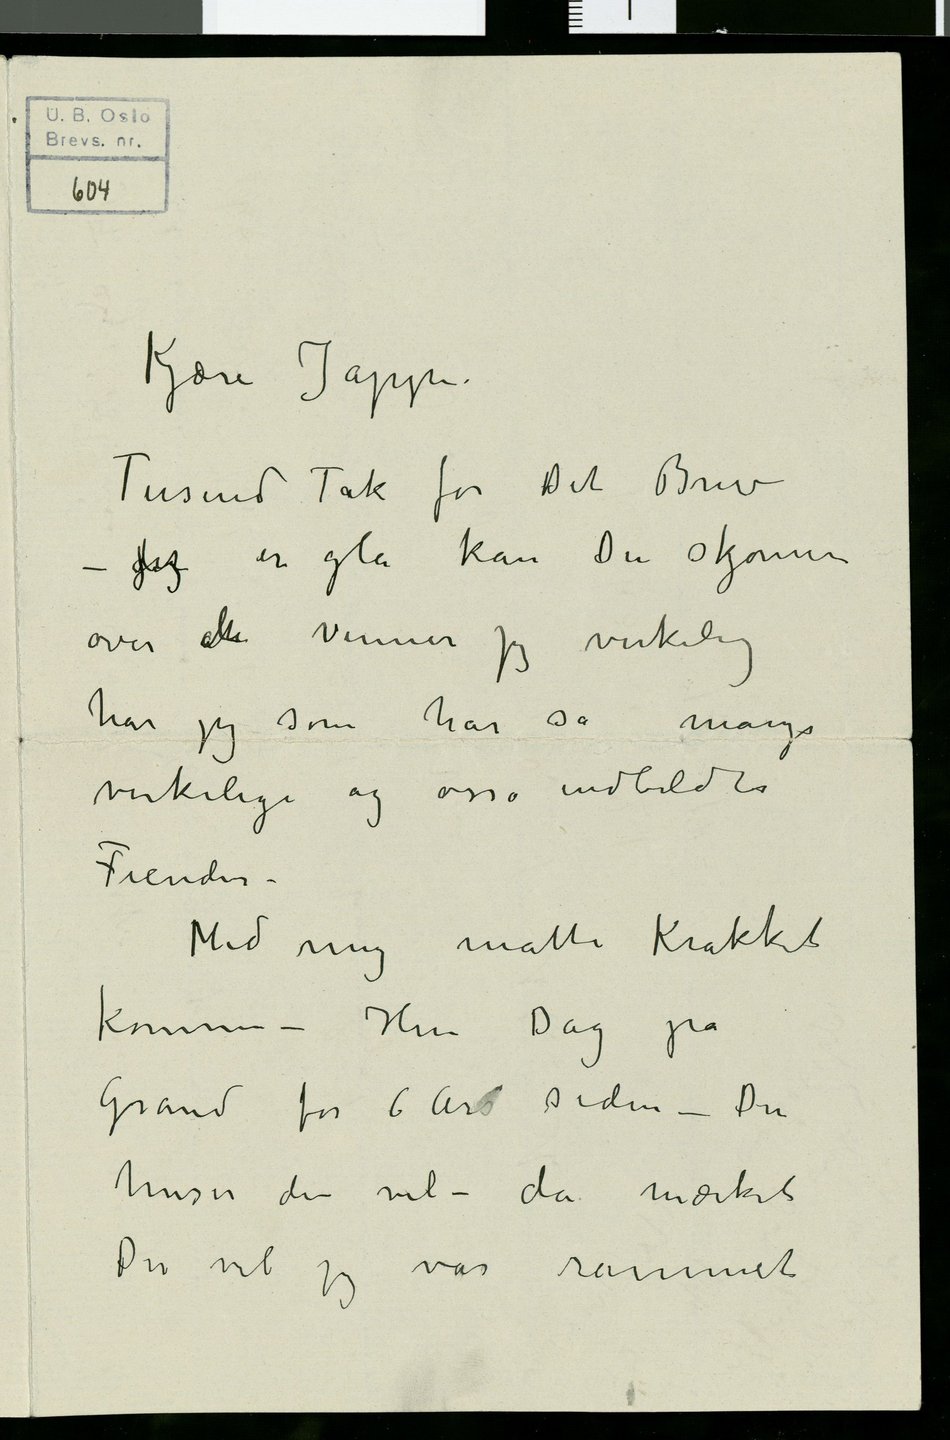 U. B. Oslo
Brevs. nr.
604
Kjære Jappe.
Tusend Tak for Dit Brev
– Jeg er gla kan Du skjønne
over de Venner jeg virkelig
har jeg som har så mange
virkelige og osså indbildte
Fiender –
Med mig måtte Krakket
komme – Hin Dag på
Grand for 6 Års siden – Du
huser den vel – da mærket
Du vel jeg var rammet